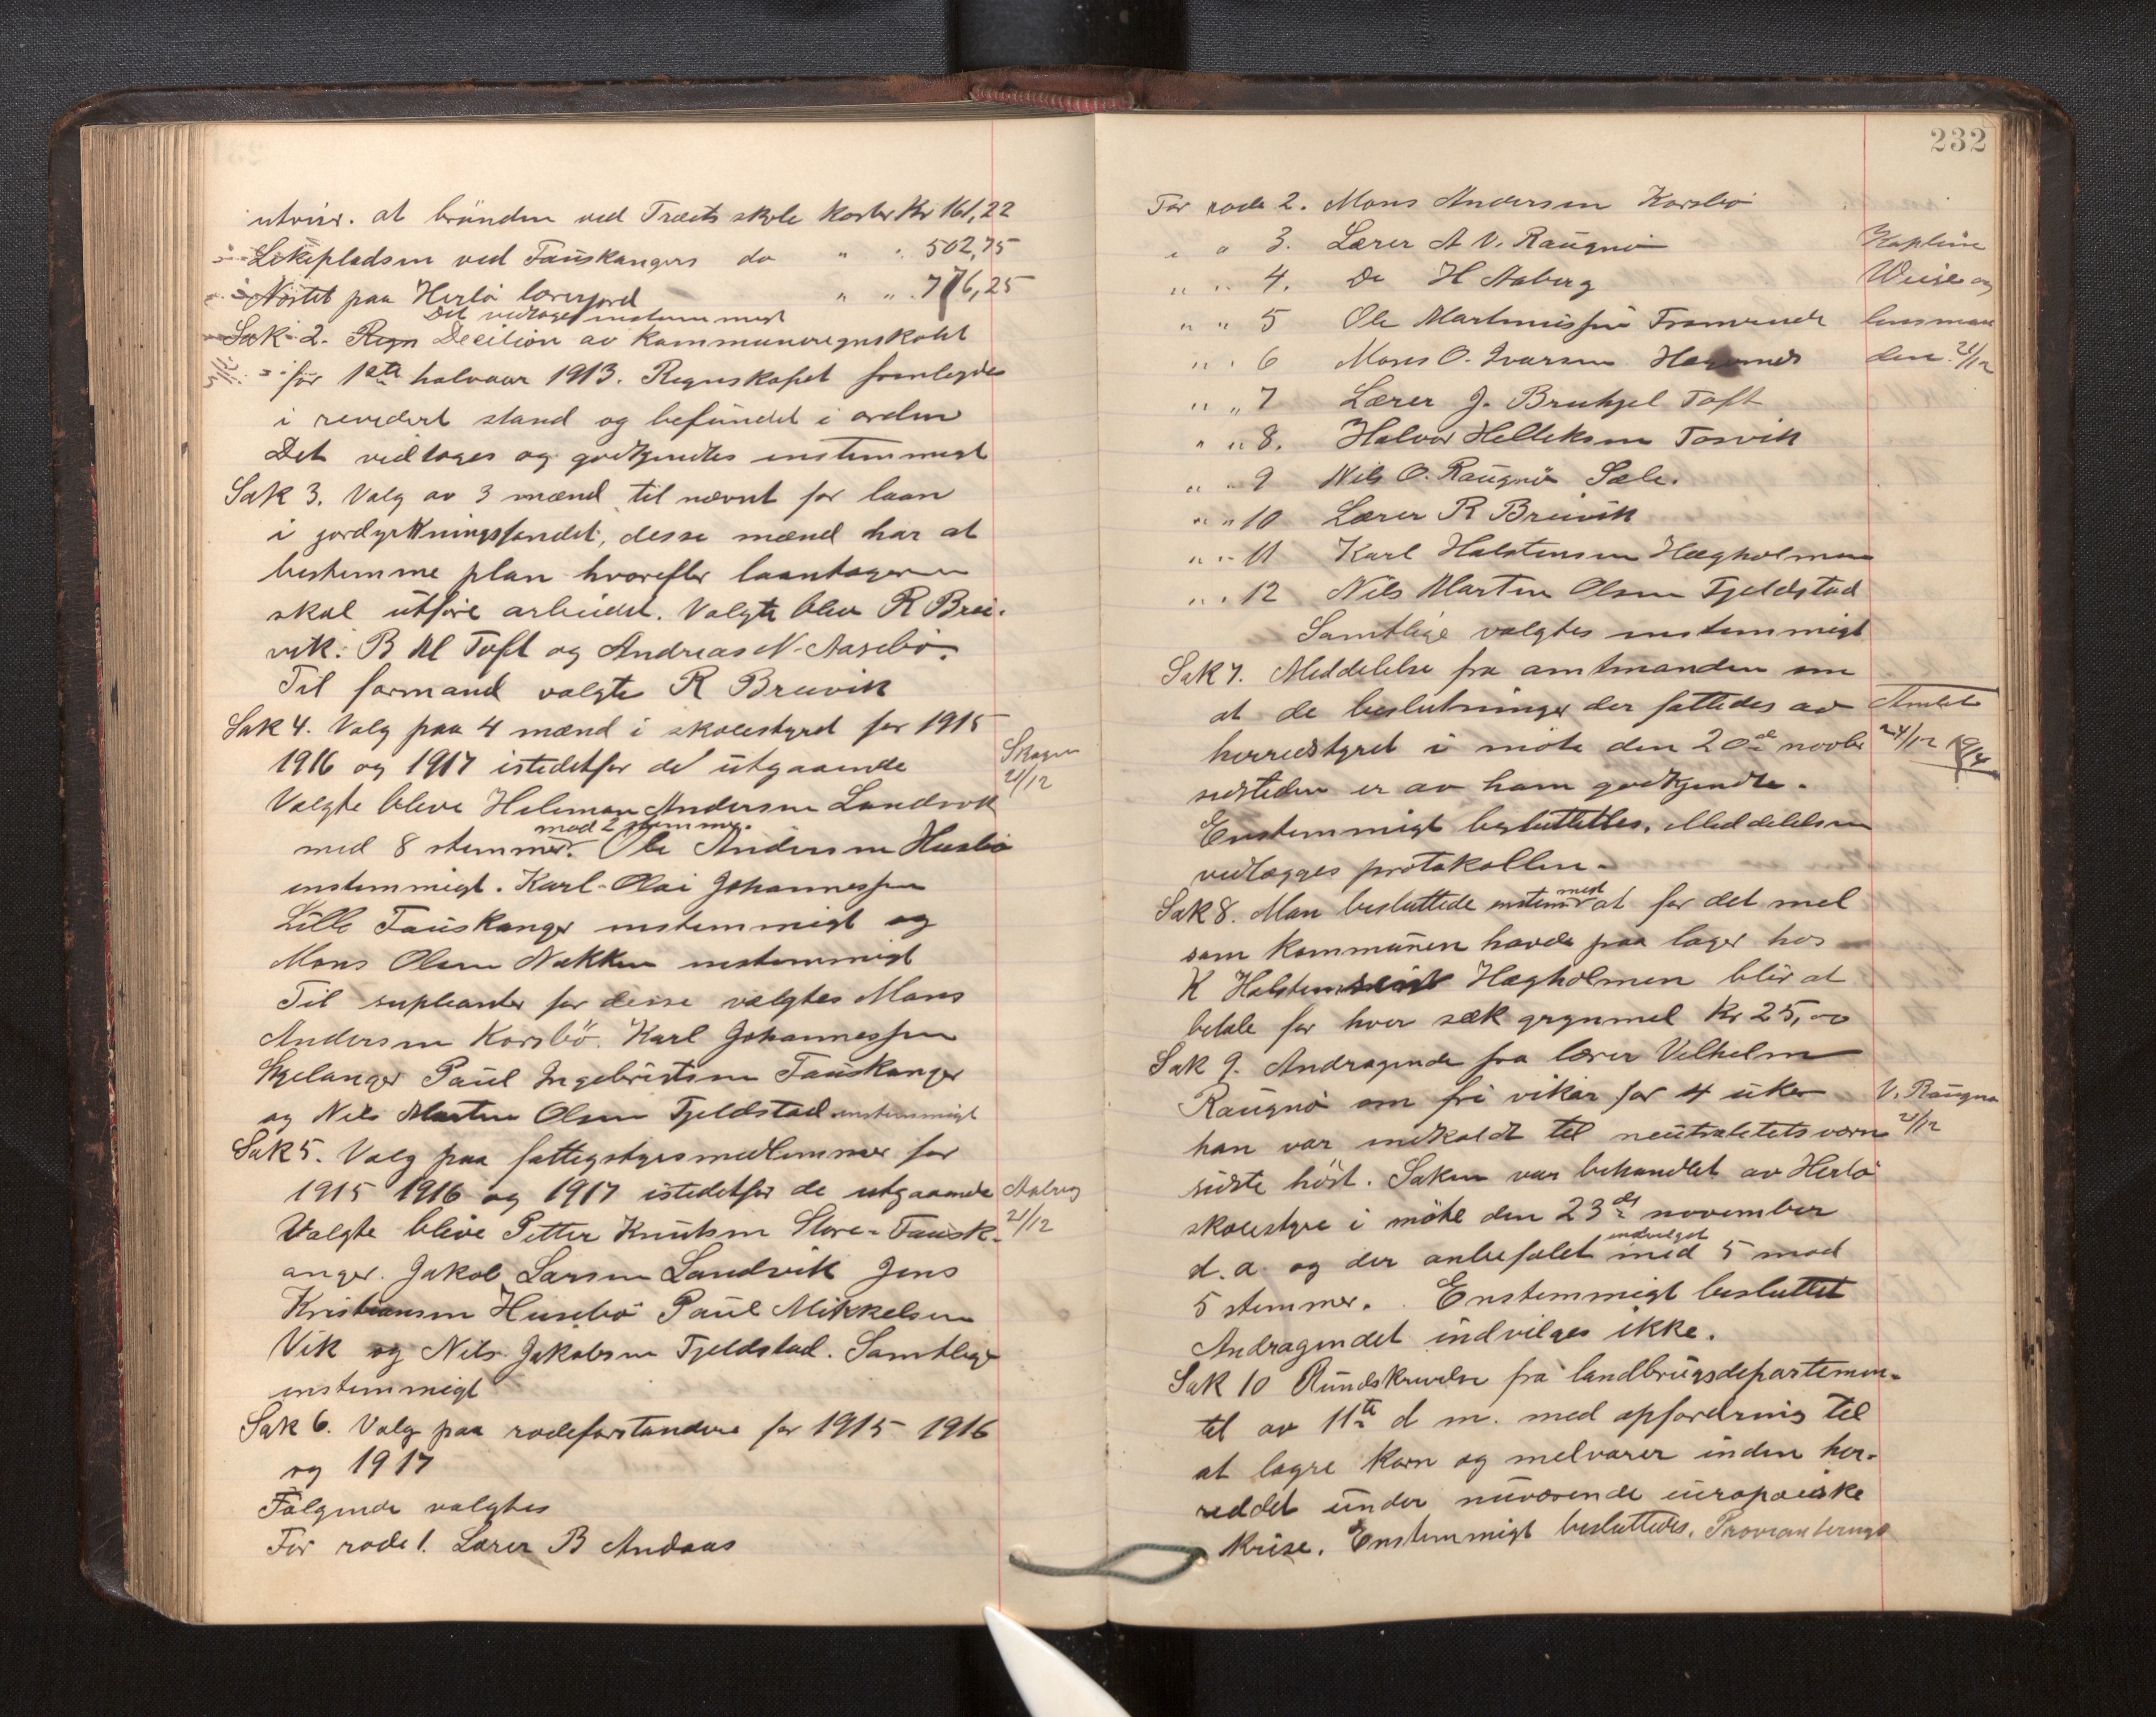 utviser. at brönden ved Træets skole koster Kr 161,22
Lekepladsen ved Fauskangers do " " 502,75
Nöstet paa Herlö lærerjord " " 776,25
Det vedtoges enstemmigt
Sak 2. Decition av kommuneregnskabet
for 1ste halvaar 1913. Regnskapet fremlagdes
i revidert stand og befundet i orden
Det vedtoges og godkjendtes enstemmigt
Sak 3. Valg av 3 mænd til nævnt for laan
i jordyrkningsfondet, desse mænd har at
bestemme plan hvorefter laantageren
skal utföre arbeidet. Valgte blev R Brei-
vik. B M Toft og Andreas N. Aasebö.
Til formand valgte R Breivik
Sak 4. Valg paa 4 mænd i skolestyret for 1915
1916 og 1917 istedetfor de utgaaende
Skagen
21/12
Valgte bleve Helmer Andersen Landsvik
mod 2 stemmer.
med 8 stemmer. Ole Andersen Husebö
enstemmigt. Karl Olai Johannessen
Lille Fauskanger enstemmigt og
Mons Olsen Nakken enstemmigt
Til supleanter for desse valgtes Mons
Andersen Korsbö. Karl Johannessen
Skjelanger Paul Ingebrigtsen Fauskanger
og Nils Martin Olsen Fjeldstad enstemmigt
Sak 5. Valg paa fattigstyresmedlemmer for
1915 1916 og 1917 istedetfor de utgaaende
Aaberg
21/12
Valgte bleve Petter Knutsen Store-Fausk-
anger. Jakob Larsen Landsvik Jens
Kristiansen Husebö Paul Mikkelsen
Vik og Nils Jakobsen Fjeldstad. Samtlige
enstemmigt
Sak 6. Valg paa rodeforstandere for 1915 1916
og 1917
Fölgende valgtes
For rode 1. Lærer B Andaas
232
For rode 2. Mons Andersen Korsbö
" " 3. Lærer A V. Raugnö
" " 4. Do H Aaberg
" " 5 Ole Martinussen Fromreide
" " 6 Mons O. Ivarsen Hagenes
Kaptein
Weise og
lensman
den 21/12
" " 7 Lærer J. Bruhjel Toft
" " 8. Halvor Helleksen Torsvik
" " 9 Nils O. Raugnö Sæle.
" " 10 Lærer R Breivik
" " 11 Karl Halstensen Hægholmen
" " 12 Nils Martin Olsen Fjeldstad
Samtlige valgtes enstemmigt
Sak 7. Meddelelse fra amtmanden om
at de beslutninger der fattedes av
herredstyret i möte den 20de novbr
Amtet
24/12
sidstleden er av ham godkjendte.
Enstemmigt besluttedes. Meddelelsen
vedlægges protokollen.
Sak 8. Man besluttede enstemmigt at for det mel
som kommunen havde paa lager hos
K Halstensen Hægholmen blir at
betale for hver sæk grynmel kr 25,00
Sak 9. Andragende fra lærer Vilhelm
Raugnö om fri vikar for 4 uker
V. Raugnö
21/12
han var indkaldt til neutralitetsværn
sidste höst. Saken var behandlet av Herlö
skolestyre i möte den 23de november
d. a. og der anbefalet indvilget med 5 mod
5 stemmer. Enstemmigt besluttet
Andragendet indvilges ikke.
Sak 10 Rundskrivelse fra landbrugsdepartemen-
tet av 11te d m. med opfordring til
at lagre korn og melvarer inden her-
redet under nuværende europæiske
krise. Enstemmigt besluttedes. Provianterings